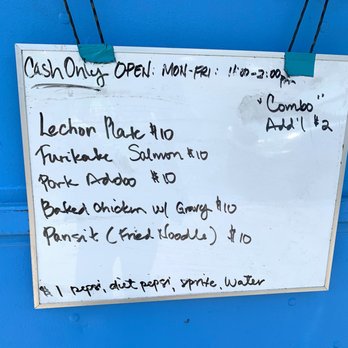 Cash Only OPEN: MON-FRI: 11:00-2:00pm
"Combo"
Add'l $2
Lechon Plate $10
Furikake Salmon $10
Pork Adobo $10
Baked Chicken w/ Gravy $10
Pansit (Fried Noodle) $10
$1 pepsi, diet pepsi, sprite, water